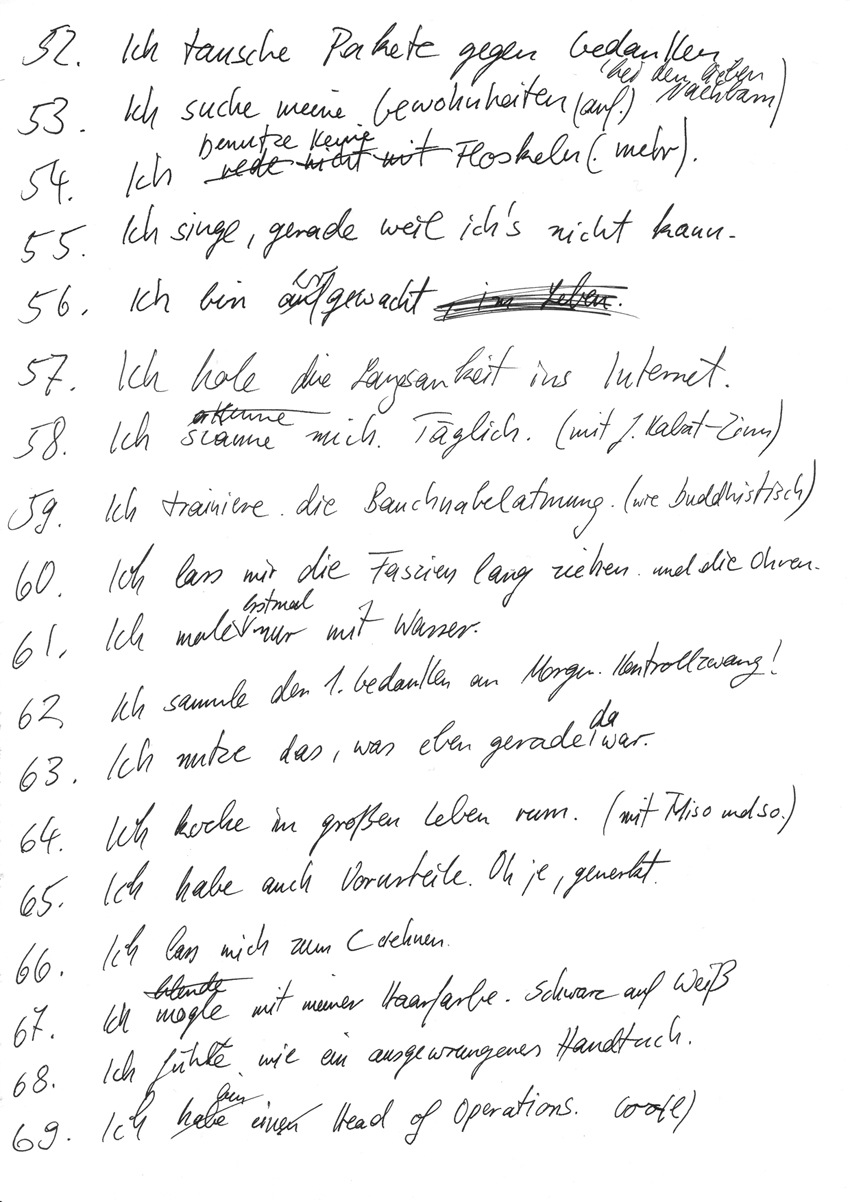 52. Ich tausche Pakete gegen Gedanken
(bei den lieben Nachbarn)
53. Ich suche meine Gewohnheiten (auf.)
benutze keine
54. Ich rede nicht mit Floskeln (mehr).
55. Ich singe, gerade weil ich's nicht kann.
56. Ich bin aufgewacht im Leben.
57. Ich hole die Langsamkeit ins Internet.
erkenne
58. Ich scanne mich. Täglich. (mit J. Kabat-Zinn)
59. Ich trainiere die Bauchnabelatmung. (wie buddhistisch)
60. Ich lass mir die Faszien lang ziehen. und die Ohren.
erstmal
61. Ich male nur mit Wasser.
62. Ich sammle den 1. Gedanken am Morgen. Kontrollzwang!
da
63. Ich nutze das, was eben gerade war.
64. Ich koche im großen Leben rum. (mit Miso und so.)
65. Ich habe auch Vorurteile. Oh je, gemerkt.
66. Ich lass mich zum C dehnen.
blende
67. Ich mogle mit meiner Haarfarbe. Schwarz auf Weiß
68. Ich fühlte wie ein ausgewrungenes Handtuch.
bin
69. Ich habe einen Head of Operations.